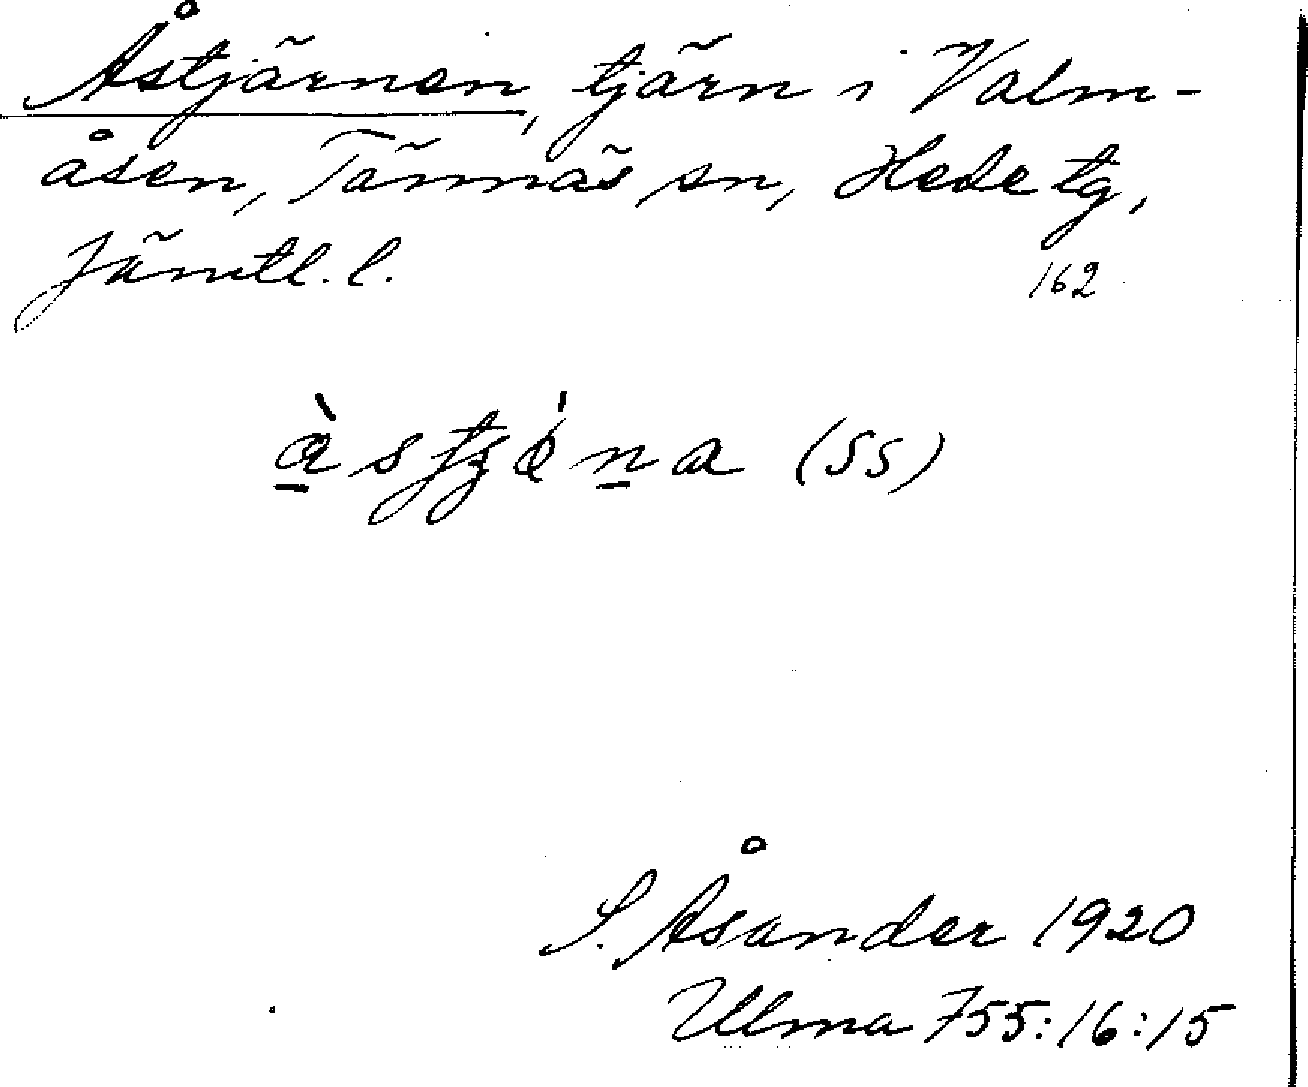 Åstjärnen, tjärn i Valm-
åsen, Tännäs sn, Hede tg,
Jämtl. l.
162
(SS)
S. Åsander 1920
Ulma 755:16:15